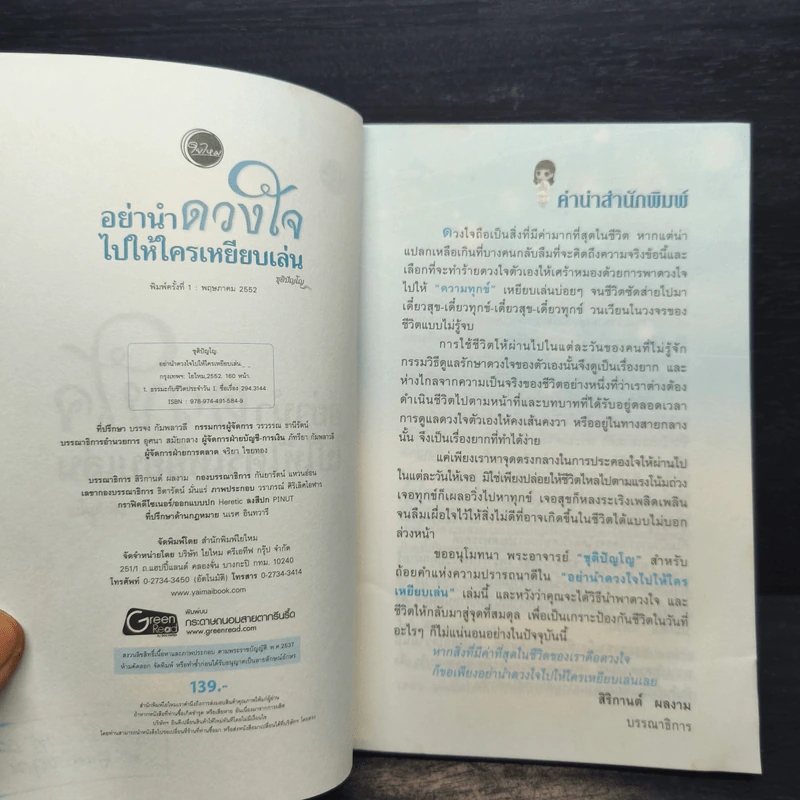 ใยไหม
อย่านำดวงใจ
ไปให้ใครเหยียบเล่น
ชุติปัญโญ
พิมพ์ครั้งที่ 1 : พฤษภาคม 2552
ชุติปัญโญ.
อย่านำดวงใจไปให้ใครเหยียบเล่น.
กรุงเทพฯ: ใยไหม,2552. 160 หน้า.
1. ธรรมะกับชีวิตประจำวัน I. ชื่อเรื่อง 294.3144
ISBN : 978-974-491-584-9
ที่ปรึกษา บรรจง กัมพลาวลี กรรมการผู้จัดการ วรวรรณ ธานีรัตน์
บรรณาธิการอำนวยการ อุศนา สมัยกลาง ผู้จัดการฝ่ายบัญชี-การเงิน ภัทริยา กัมพลาวลี
ผู้จัดการฝ่ายการตลาด จริยา ไชยทอง
บรรณาธิการ สิริกานต์ ผลงาม กองบรรณาธิการ กันยารัตน์ แหวนอ่อน
เลขากองบรรณาธิการ ธิดารัตน์ มั่นแร่ ภาพประกอบ วราภรณ์ ศิริเลิศโอฬาร
กราฟิคดีไซเนอร์/ออกแบบปก Heretic ลงสีปก PINUT
ที่ปรึกษาด้านกฎหมาย นเรศ อินทวารี
จัดพิมพ์โดย สำนักพิมพ์ใยไหม
จัดจำหน่ายโดย บริษัท ใยไหม ครีเอทีฟ กรุ๊ป จำกัด
251/1 ถ.แฮปปี้แลนด์ คลองจั่น บางกะปิ กทม. 10240
โทรศัพท์ 0-2734-3450 (อัตโนมัติ) โทรสาร 0-2734-3414
www.yaimaibook.com
Green Read
พิมพ์บน
กระดาษถนอมสายตากรีนรี้ด
www.greenread.com
สงวนลิขสิทธิ์เนื้อหาและภาพประกอบ ตามพระราชบัญญัติ พ.ศ.2537
ห้ามคัดลอก จัดพิมพ์ หรือทำซ้ำก่อนได้รับอนุญาตเป็นลายลักษณ์อักษร
139.-
สำนักพิมพ์ใยไหมเราคำนึงถึงการส่งมอบสินค้าคุณภาพให้แก่ผู้อ่าน
ถ้าหากหนังสือที่ท่านซื้อเกิดชำรุด หรือเสียหาย อันเนื่องมาจากการผลิต
บริษัทฯ ยินดีเปลี่ยนสินค้าให้ใหม่ทันทีโดยไม่มีเงื่อนไข
โดยท่านสามารถนำหนังสือไปขอเปลี่ยนที่ร้านที่ท่านซื้อมา หรือส่งหนังสือไปเปลี่ยนที่บริษัทฯ โดยตรง
คำนำสำนักพิมพ์
ดวงใจถือเป็นสิ่งที่มีค่ามากที่สุดในชีวิต หากแต่น่า
แปลกเหลือเกินที่บางคนกลับลืมที่จะคิดถึงความจริงข้อนี้และ
เลือกที่จะทำร้ายดวงใจตัวเองให้เศร้าหมองด้วยการพาดวงใจ
ไปให้ “ความทุกข์” เหยียบเล่นบ่อยๆ จนชีวิตซัดส่ายไปมา
เดี๋ยวสุข-เดี๋ยวทุกข์-เดี๋ยวสุข-เดี๋ยวทุกข์ วนเวียนในวงจรของ
ชีวิตแบบไม่รู้จบ
การใช้ชีวิตให้ผ่านไปในแต่ละวันของคนที่ไม่รู้จัก
กรรมวิธีดูแลรักษาดวงใจของตัวเองนั้นจึงดูเป็นเรื่องยาก และ
ห่างไกลจากความเป็นจริงของชีวิตอย่างหนึ่งที่ว่าเราต่างต้อง
ดำเนินชีวิตไปตามหน้าที่และบทบาทที่ได้รับอยู่ตลอดเวลา
การดูแลดวงใจตัวเองให้คงเส้นคงวา หรืออยู่ในทางสายกลาง
นั้น จึงเป็นเรื่องยากที่ทำได้ง่าย
แค่เพียงเราหาจุดตรงกลางในการประคองใจให้ผ่านไป
ในแต่ละวันให้เจอ มิใช่เพียงปล่อยให้ชีวิตไหลไปตามแรงโน้มถ่วง
เจอทุกข์ก็เผลอวิ่งไปหาทุกข์ เจอสุขก็หลงระเริงเพลิดเพลิน
จนลืมเผื่อใจไว้ให้สิ่งไม่ดีที่อาจเกิดขึ้นในชีวิตได้แบบไม่บอก
ล่วงหน้า
ขออนุโมทนา พระอาจารย์ “ชุติปัญโญ” สำหรับ
ถ้อยคำแห่งความปรารถนาดีใน “อย่านำดวงใจไปให้ใคร
เหยียบเล่น” เล่มนี้ และหวังว่าคุณจะได้วิธีนำพาดวงใจ และ
ชีวิตให้กลับมาสู่จุดที่สมดุล เพื่อเป็นเกราะป้องกันชีวิตในวันที่
อะไรๆ ก็ไม่แน่นอนอย่างในปัจจุบันนี้
หากสิ่งที่มีค่าที่สุดในชีวิตของเราคือดวงใจ
ก็ขอเพียงอย่านำดวงใจไปให้ใครเหยียบเล่นเลย
สิริกานต์ ผลงาม
บรรณาธิการ